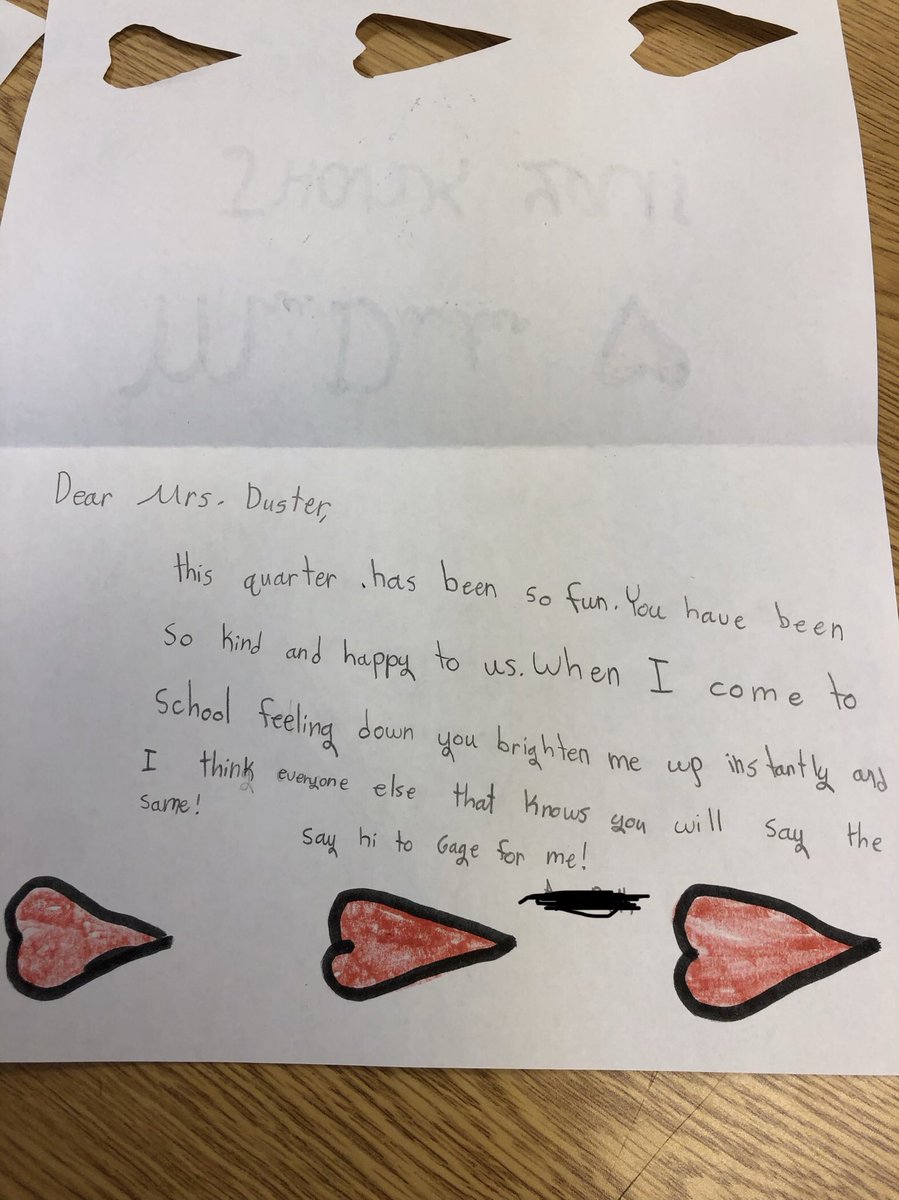 Dear Mrs. Duster,
this quarter .has been so fun. You have been
so kind and happy to us. When I come to
School feeling down you brighten me up instantly and
I think everyone else that knows you will say the
same!
Say hi to Gage for me!